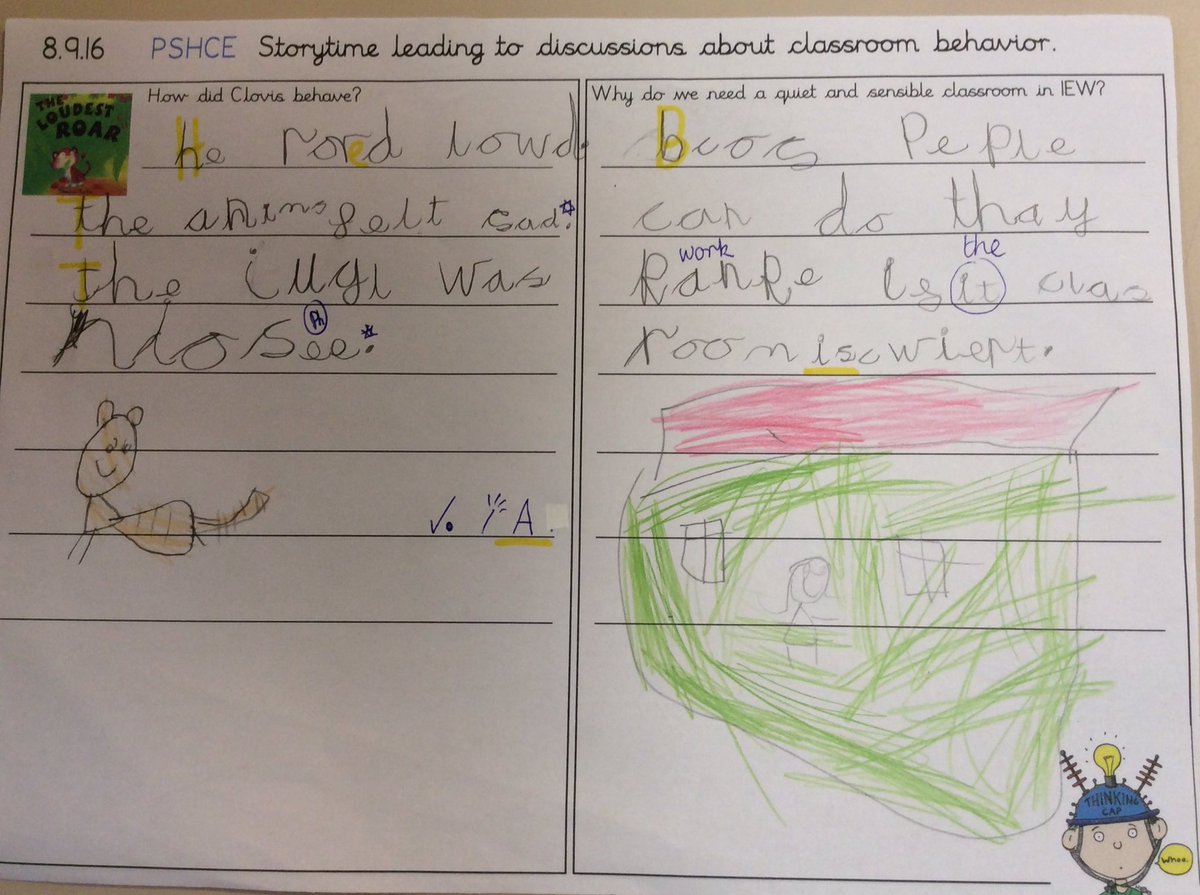 8.9.16 PSHCE Storytime leading to discussions about classroom behavior.
THE LOUDEST ROAR
How did Clovis behave?
He rored lowd
the anims felt sad.
The iugl was
nlosee.
Ph
✓. A.
Why do we need a quiet and sensible classroom in IEW?
Bcos Peple
can do thay
work the
is it clas
room is cwiept.
THINKING CAP
whoa